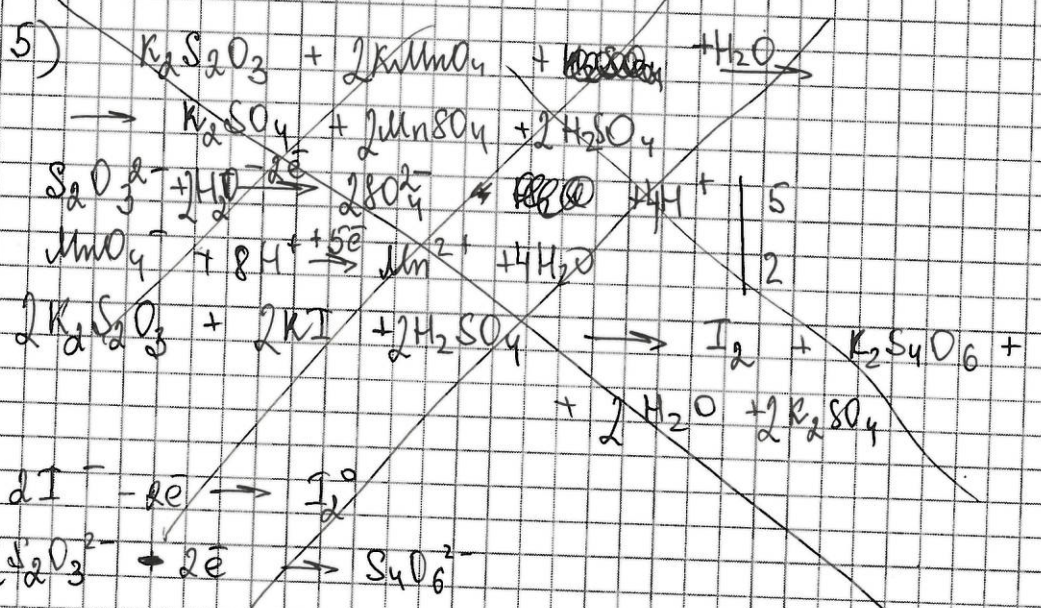 5) K₂S₂O₃ + 2KMnO₄ + +H₂O →
→ K₂SO₄ + 2MnSO₄ + 2H₂SO₄
S₂O₃²⁻ + 2H₂O -2ē → 2SO₄²⁻ +4H⁺ | 5
MnO₄⁻ + 8H⁺ +5ē → Mn²⁺ + 4H₂O | 2
2K₂S₂O₃ + 2KI + 2H₂SO₄ → I₂ + K₂S₄O₆ +
+ 2H₂O + 2K₂SO₄
2I⁻ - 2ē → I₂⁰
S₂O₃²⁻ - 2ē → S₄O₆²⁻